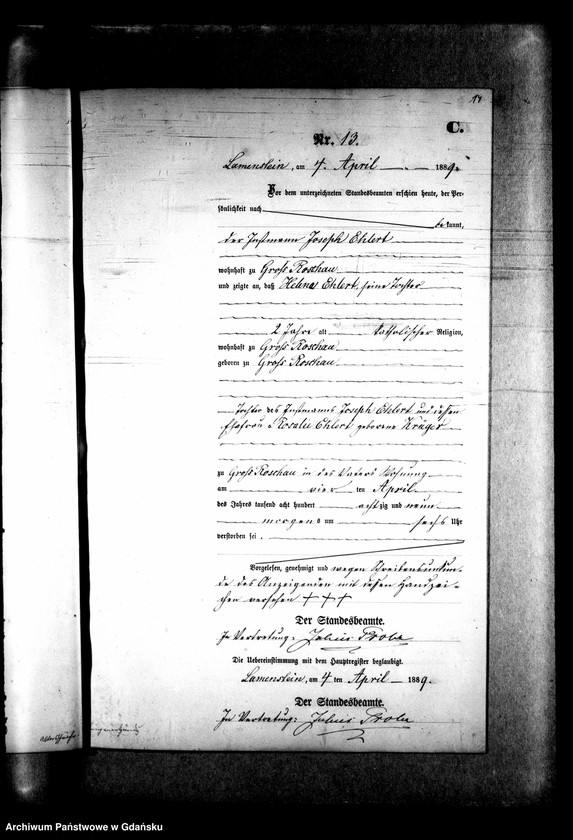 14
C.
Nr. 13.
Lamenstein, am 4. April 1889.
Vor dem unterzeichneten Standesbeamten erschien heute, der Per-
sönlichkeit nach
bekannt,
der Instmann Joseph Ehlert
wohnhaft zu Groß Roschau
und zeigte an, daß Helena Ehlert, seine Tochter
2 Jahre alt katholischer Religion,
wohnhaft zu Groß Roschau
geboren zu Groß Roschau
Tochter des Instmanns Joseph Ehlert und dessen
Ehefrau Rosalie Ehlert geborene Krüger
zu Groß Roschau in des Vaters Wohnung
am vier ten April
des Jahres tausend acht hundert achtzig und neun
morgens um sechs Uhr
verstorben sei.
Vorgelesen, genehmigt und wegen Schreibensunkun-
de des Anzeigenden mit dessen Handzei-
chen versehen +++
Der Standesbeamte.
In Vertretung: Julius
Die Uebereinstimmung mit dem Hauptregister beglaubigt.
Lamenstein, am 4 ten April 1889.
Der Standesbeamte.
In Vertretung: Julius
Archiwum Państwowe w Gdańsku